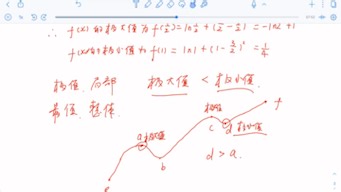 ∴ f(x) 的极大值为 f(1/2) = ln 1/2 + (1/2 - 3/2)² = -ln2 + 1
f(x)的极小值为 f(1) = ln1 + (1 - 3/2)² = 1/4
极值. 局部 极大值 < 极小值.
最值. 整体.
极值 f
a 极大值 c d 极小值
b d > a.
e